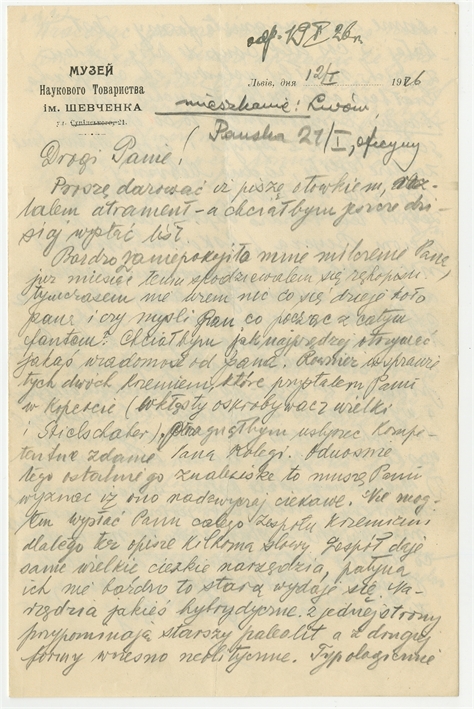 odp. 19 I 26 r.
МУЗЕЙ
Наукового Товариства
ім. ШЕВЧЕНКА
ул. Супінського 21.
Львів, дня 12/I 1926
mieszkanie: Lwów,
Pańska 21/I, oficyny
Drogi Panie!
Proszę darować iż piszę ołówkiem,
lałem atrament – a chciałbym jeszcze dzi-
siaj wysłać list.
Bardzo zaniepokoiło mnie milczenie Pana,
już miesiąc temu spodziewałem się rękopisu
tymczasem nie wiem nic co się dzieje koło
pana i czy myśli Pan co począć z całym
fantem? Chciałbym jaknajprędzej otrzymać
jakąś wiadomość od pana. Również w sprawie
tych dwóch krzemieni, które przysłałem Panu
w kopercie (wklęsły oskrobywacz wielki
i Stielschaber), pragnąłbym usłyszeć kompe-
tentne zdanie Pana Kolegi. Odnośnie
tego ostatniego znaleziska to muszę Panu
wyznać iż ono nadzwyczaj ciekawe. Nie mog-
łem wysłać Panu całego zespołu krzemieni
dlatego też opiszę kilkoma słowy. Zespół daje
same wielkie ciężkie narzędzia, patyna
ich nie bardzo to starą wydaje się. Na-
rzędzia jakieś hybrydyczne z jednej strony
przypominają starszy paleolit a z drugiej
formy wczesno neolityczne. Typologicznie